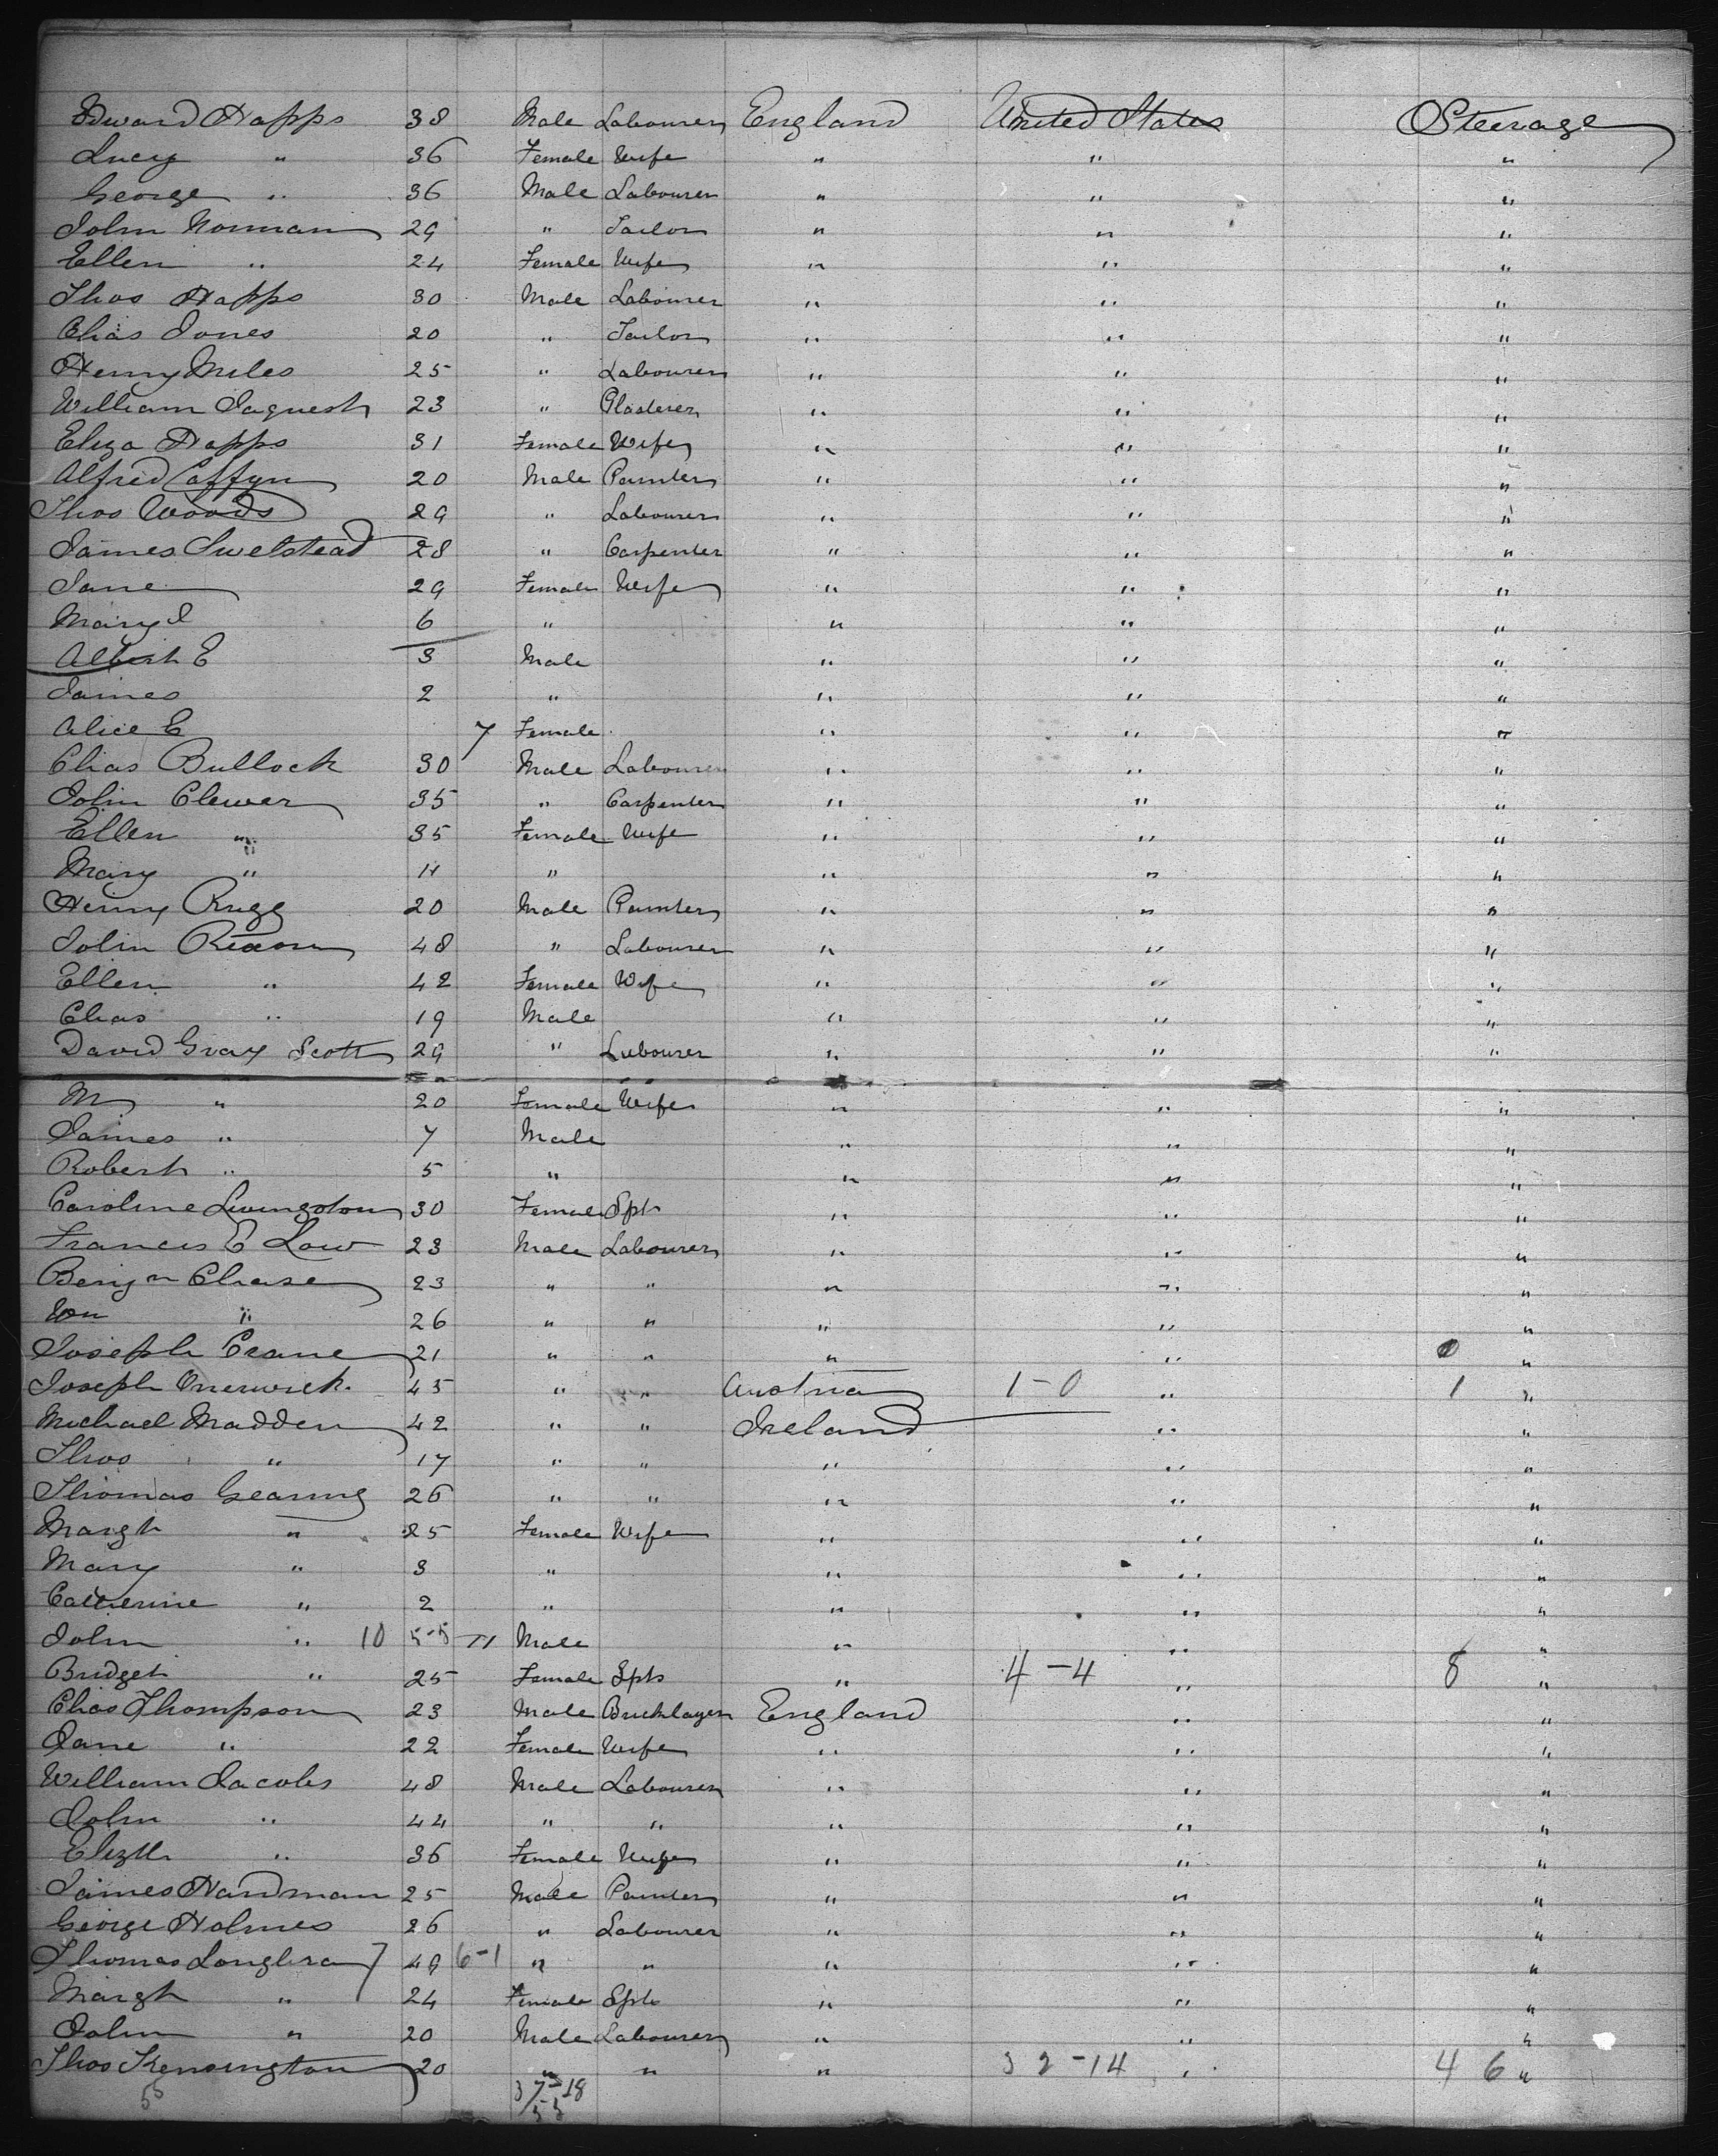 Edward Happs 38 Male Labourer England United States Steerage
Lucy " 36 Female Wife " " "
George " 36 Male Labourer " " "
John Norman 29 " Tailor " " "
Ellen " 24 Female Wife " " "
Thos Happs 30 Male Labourer " " "
Chas Jones 20 " Tailor " " "
Henry Miles 25 " Labourer " " "
William 23 " Plasterer " " "
Eliza Happs 31 Female Wife " " "
Alfred Caffyn 20 Male Painter " " "
Thos Woods 29 " Labourer " " "
James Swelstead 28 " Carpenter " " "
Jane 29 Female Wife " " "
Mary J 6 " " " "
Albert E 3 Male " " "
James 2 " " " "
Alice E 7 Female " " "
Chas Bullock 30 Male Labourer " " "
John Clewer 35 " Carpenter " " "
Ellen " 35 Female Wife " " "
Mary " 11 " " " "
Henry Rugg 20 Male Painter " " "
John Rixon 48 " Labourer " " "
Ellen " 42 Female Wife " " "
Chas " 19 Male " " "
David Gray Scott 29 " Labourer " " "
M " 20 Female Wife " " "
James " 7 Male " " "
Robert " 5 " " " "
Caroline Livingston 30 Female Spt " " "
Francis E Law 23 Male Labourer " " "
Benjn Chase 23 " " " " "
Wm " 26 " " " " "
Joseph Crane 21 " " " " 0 "
Joseph 45 " " Austria 1-0 " 1 "
Michael Madden 42 " " Ireland " "
Thos " 17 " " " " "
Thomas Gearing 26 " " " " "
Margt " 25 Female Wife " " "
Mary " 3 " " " "
Catherine " 2 " " " "
John " 10 5-5 11 Male " " "
Bridget " 25 Female Spt " 4-4 " 8 "
Chas Thompson 23 Male Bricklayer England " "
Jane " 22 Female Wife " " "
William Jacobs 48 Male Labourer " " "
John " 44 " " " " "
Elizth " 36 Female Wife " " "
James Hardman 25 Male Painter " " "
George Holmes 26 " Labourer " " "
Thomas 7 49 6-1 " " " " "
Margt " 24 Female Spt " " "
John " 20 Male Labourer " " "
Thos Kensington 20 " " " 32-14 " 46 "
55 37-18
55